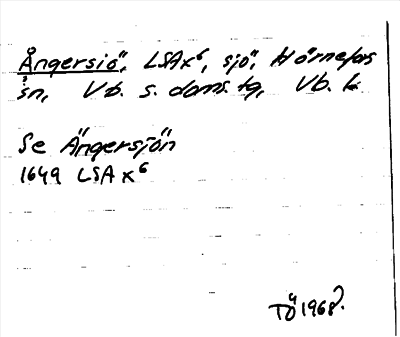 Ångersiö, LSA x⁶, sjö, Hörnefors
sn, Vb. s. doms. tg, Vb. l.
Se Ängersjön
1649 LSA x⁶
TÖ 1968.